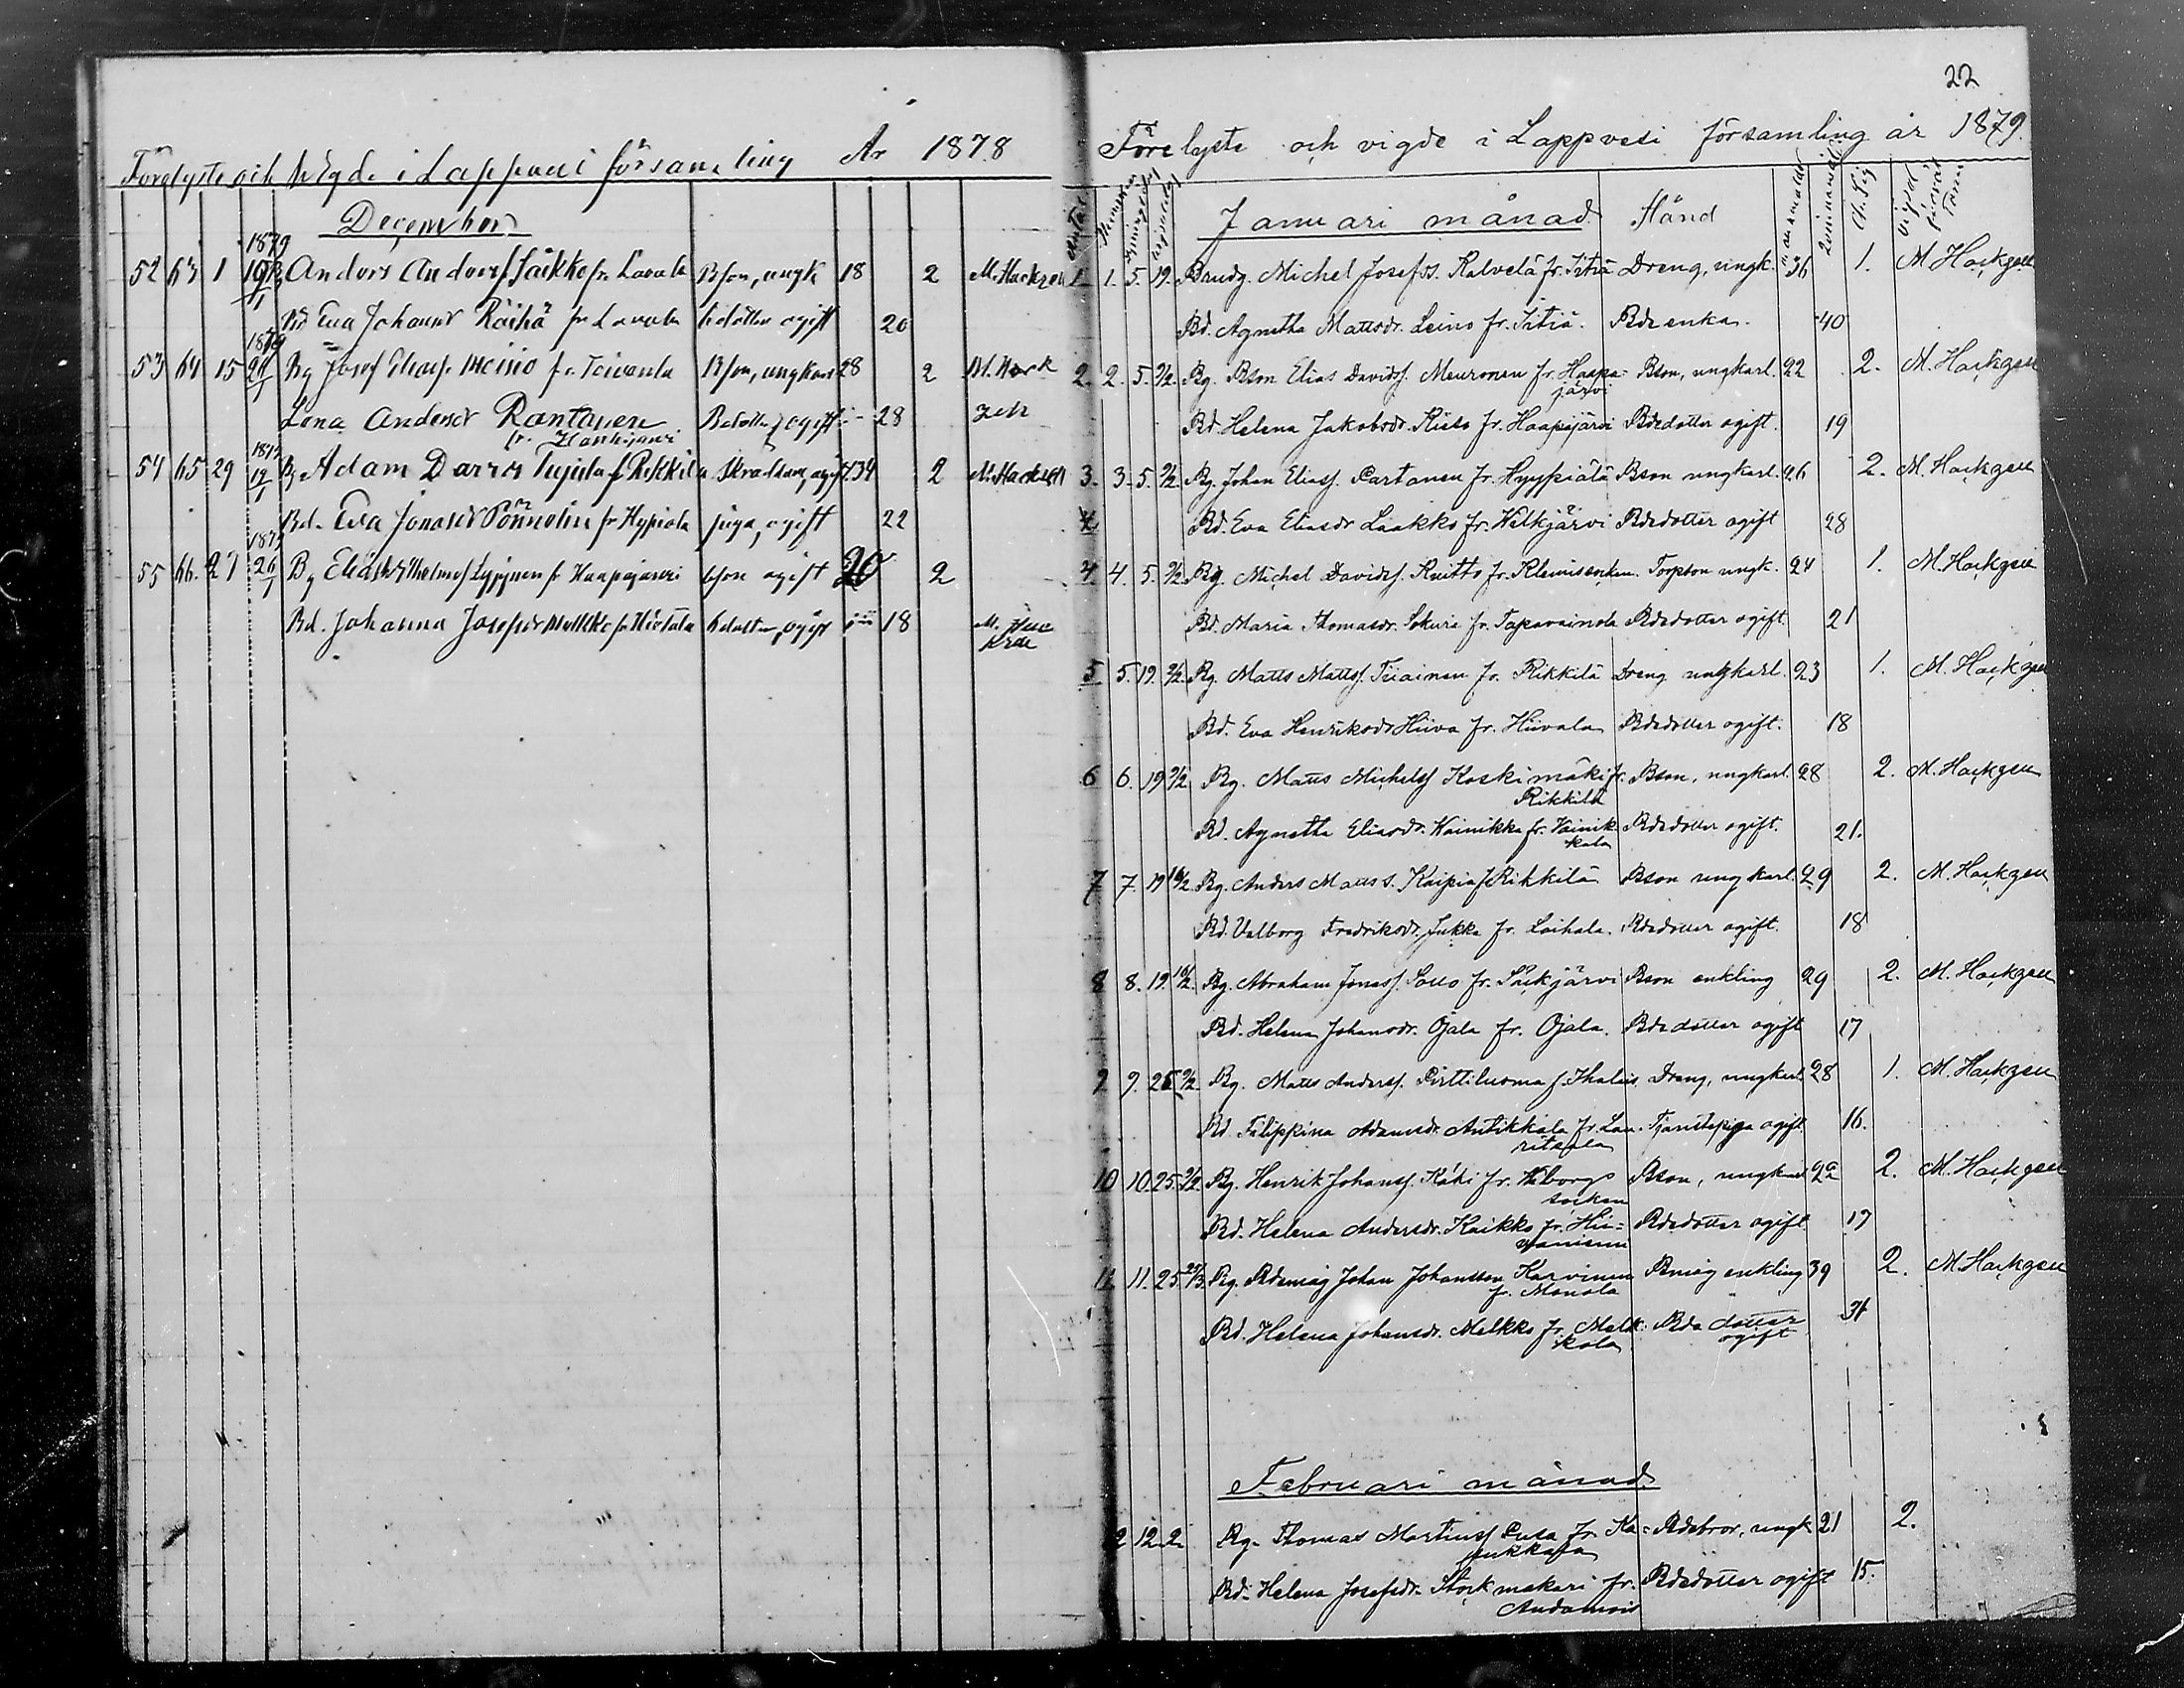 Förelyste och Wigde i Lappvesi församling År 1878
December
1879
52 63 1 Anders Anderss Jäkko fr. Lavola Bson, ungk 18 2 M. Hackzell
Bd Eva Johansdr Räihä fr Lavola bdotter ogift 20
1879
53 64 15 Bg Josef Eliass Meino fr. Toivarila Bson, ungkarl 28 2 M. Hack
Lena Andersdr Rantanen Bdotter, ogift 28 zell
fr. Hanhijärvi
1879
54 65 29 19/1 Bg Adam Tujula fr Rikkilä Skräddare, ogift 34 2 M. Hackzell
Bd. Eva Jonasdr Pönnelin fr Hypiälä piga, ogift 22
1879
55 66. 27 26/1 Bg Elias Wilhelmss Lyyjynen fr Haapajärvi bson ogift 20 2
Bd. Johanna Josefsdr Melkko fr Hietala bdotter, ogift 18 M.
22
Förelyste och vigde i Lappvesi församling år 1879.
Januari månad. Stånd
1. 1. 5. 19. Brudg. Michel Josefss. Kalvelä fr. Sitiä Dreng, ungk. 36 1. M. Hackzell
Bd. Agnetha Mattsdr. Leino fr. Sitiä. Bdeenka. 40
2. 2. 5. 9/2. Bg. Bson Elias Davidss. Meuronen fr. Haapa- Bson, ungkarl. 22 2. M. Hackzell
järvi
Bd. Helena Jakobsdr. Kiesa fr. Haapajärvi Bdedotter ogift. 19
3. 3. 5. 9/2. Bg. Johan Eliass. Partanen fr. Hyypiälä Bson ungkarl. 26 2. M. Hackzell
Bd. Eva Eliasdr Laakko fr. Welkjärvi Bdedotter ogift 28
4. 4. 5. 9/2. Bg. Michel Davidss. Kuitto fr. Klemis socken. Torpson ungk. 24 1. M. Hackzell
Bd. Maria Thomasdr. Sokura fr. Tapavainola Bdedotter ogift 21
5 5. 19. 9/2. Bg. Matts Mattss. Tiiainen fr. Rikkilä Dreng ungkarl. 23 1. M. Hackzell
Bd. Eva Henriksdr Hiiva fr. Hiivala Bdedotter ogift. 18
6 6. 19 9/2 Bg. Matts Michelss Koskimäki fr. Bson, ungkarl. 28 2. M. Hackzell
Rikkilä
Bd. Agnetha Eliasdr. Wainikka fr. Vainik- Bdedotter ogift. 21.
kala
7 7. 19 16/2 Bg. Anders Matts s. Kaipia fr Rikkilä Bson ungkarl. 29 2. M. Hackzell
Bd. Valborg Fredriksdr. Jukka fr. Laihala. Bdedotter ogift. 18
8 8. 19. 16/2. Bg. Abraham Jonass. Souo fr. Särkjärvi Bson enkling 29 2. M. Hackzell
Bd. Helena Johansdr. Ojala fr. Ojala. Bdedotter ogift 17
9 9. 25 9/2. Bg. Matts Anderss. Pirttiluoma f. Ihalais Dreng, ungkarl. 28 1. M. Hackzell
Bd. Filippina Adamsdr. Antikkala fr. Lau- Tjenstepiga ogift 16.
ritsala
10 10. 25. 9/2. Bg. Henrik Johanss. Kähi fr. Wiborgs Bson, ungkarl 22 2. M. Hackzell
socken
Bd. Helena Andersdr. Kaikko fr. Hii- Bdedotter ogift 17
vaniemi
11 11. 25. Bg. Bdemåg Johan Johansson Karvinen Bmåg enkling 39 2. M. Hackzell
fr. Monola
Bd. Helena Johansdr. Melkko fr. Melk- Bde dotter 31
kola ogift
Februari månad.
2 12. 2. Bg. Thomas Martinss Pusa fr. Ka- Bdebror, ungk. 21 2.
Bd. Helena Josefsdr. Stockmakari fr. Bdedotter ogift 15.